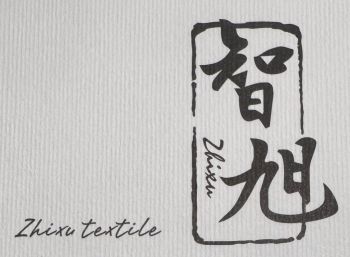 智旭
Zhixu
Zhixu textile